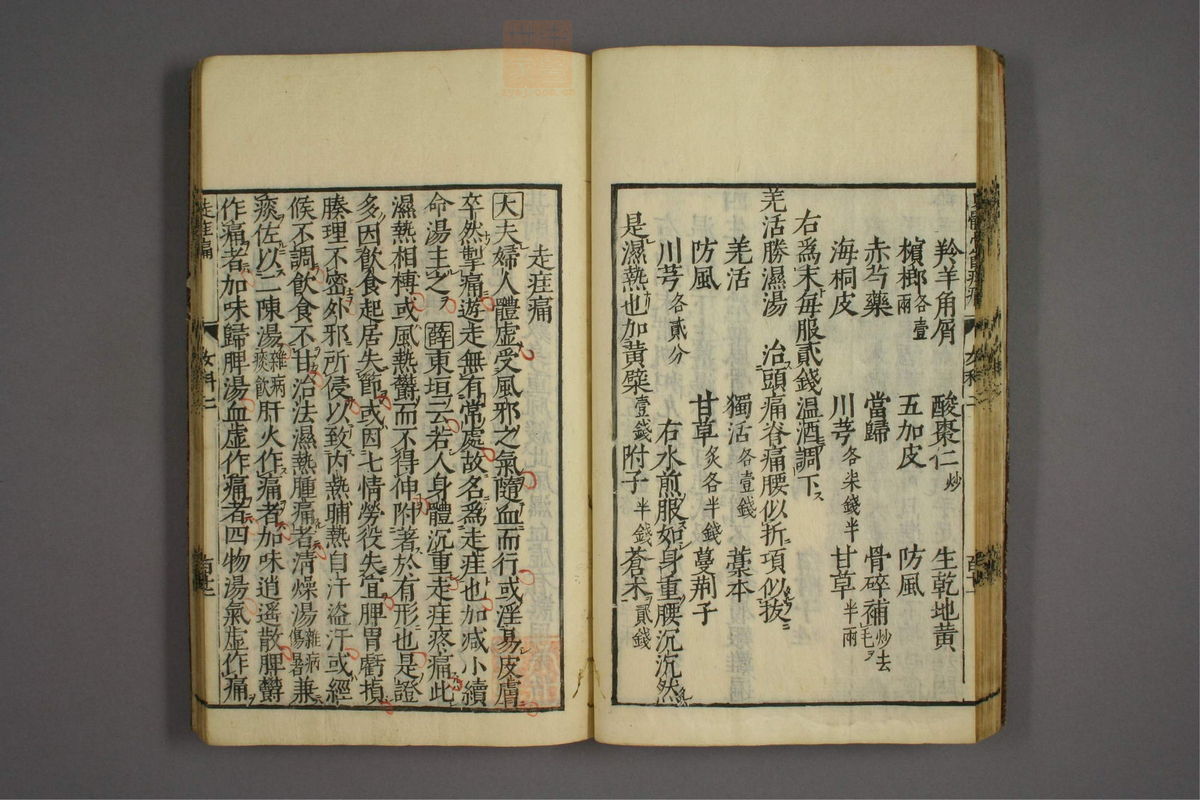 羚羊角屑　酸棗仁炒　生乾地黃
檳榔各壹兩　五加皮　防風
赤芍藥　當歸　骨碎補炒去毛
海桐皮　川芎各柒錢半　甘草半兩
右爲末每服貳錢温酒調下
羌活勝濕湯　治頭痛脊痛腰似折項似拔
羌活　獨活各壹錢　藁本
防風　甘草炙各半錢　蔓荆子
川芎各貳分　右水煎服如身重腰沉沉然
是濕熱也加黃檗壹錢附子半錢蒼朮貳錢
走疰痛
大夫婦人體虛受風邪之氣隨血而行或淫易皮膚
卒然掣痛遊走無有常處故名爲走疰也加減小續
命湯主之　薛東垣云若人身體沉重走疰疼痛此
濕熱相搏或風熱鬱而不得伸附著於有形也是證
多因飲食起居失節或因七情勞役失宜脾胃虧損
腠理不密外邪所侵以致内熱晡熱自汗盜汗或經
候不調飲食不甘治法濕熱腫痛者清燥湯雜病傷暑兼
痰佐以二陳湯雜病痰飲肝火作痛者加味逍遙散脾鬱
作痛者加味歸脾湯血虛作痛者四物湯氣虛作痛
走疰痛　女科二